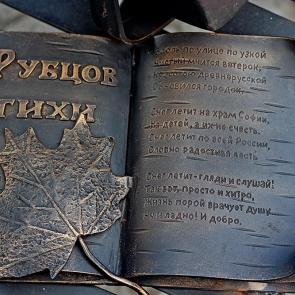 РУБЦОВ
ТИХИ
по улице по узкой
мчится ветерок,
древнерусской
городок,
Снег летит на храм Софии,
детей, а их не счесть.
Снег летит по всей России,
Словно радостная весть
Снег летит-гляди и слушай!
Так вот, просто и хитро,
жизнь порой врачует душу
ладно! И добро.